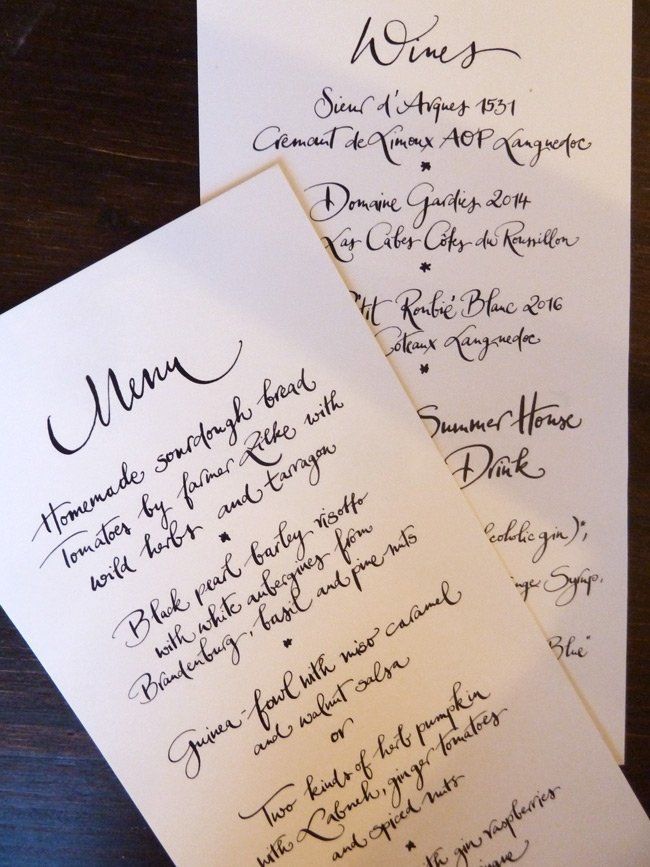 Wines
Sieur d'Arques 1531
Crémant de Limoux AOP Languedoc
*
Domaine Gardies 2014
Las Cabes Côtes du Roussillon
*
Blanc 2016
Coteaux Languedoc
*
Summer House
Drink
gin)*,
Syrup,
Blue"
Menu
Homemade sourdough bread
Tomatoes by farmer Zilke with
wild herbs and tarragon
*
Black pearl barley risotto
with white aubergines from
Brandenburg, basil and pine nuts
*
Guinea-fowl with miso caramel
and walnut salsa
or
Two kinds of herb pumpkin
with Labneh, ginger tomatoes
and spiced nuts
*
gin raspberries